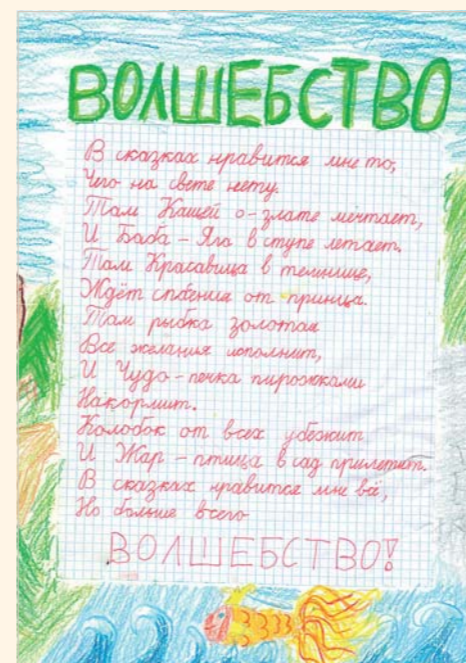 ВОЛШЕБСТВО
В сказках нравится мне то,
Чего на свете нету.
Там Кащей о-злате мечтает,
И Баба-Яга в ступе летает.
Там Красавица в темнице,
Ждёт спасения от принца.
Там рыбка золотая
Все желания исполнит,
И Чудо-печка пирожками
Накормит.
Колобок от всех убежит
И Жар-птица в сад прилетит.
В сказках нравится мне всё,
Но больше всего
ВОЛШЕБСТВО!